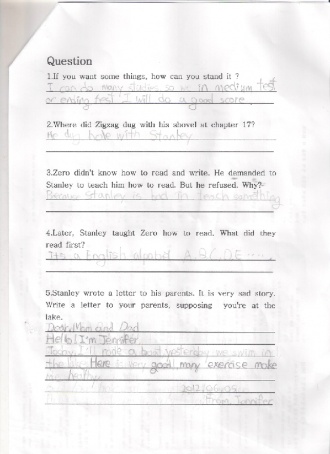 Question
1.If you want some things, how can you stand it ?
I can do many studies so as in medium test
or ending test I will do a good score.
2.Where did Zigzag dug with his shovel at chapter 17?
He dug hole with Stanley
3.Zero didn't know how to read and write. He demanded to
Stanley to teach him how to read. But he refused. Why?
Because Stanley is bad in teach something
4.Later, Stanley taught Zero how to read. What did they
read first?
It's a English alphabet A, B, C, D, E ......
5.Stanley wrote a letter to his parents. It is very sad story.
Write a letter to your parents, supposing you're at the
lake.
Dear, Mom and Dad
Hello! I'm Jennifer
Today, I'll ride a boat yesterday swim in
the Here very good many exercise make
me healthy
From Jennifer